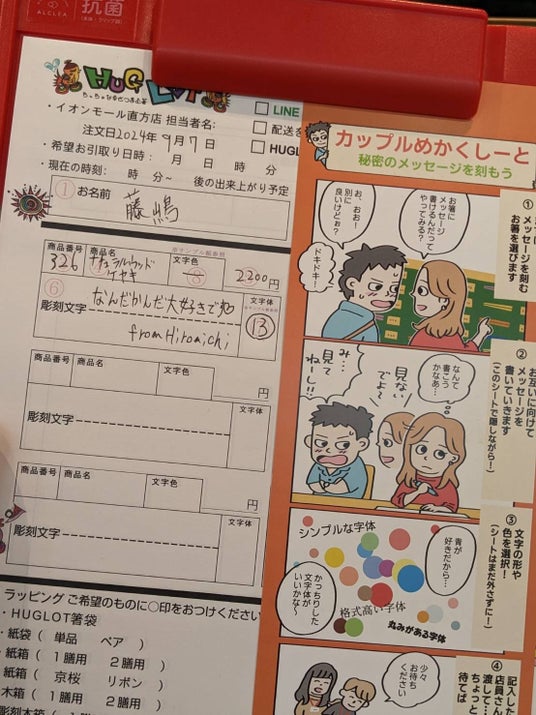 ALCLEA
抗菌
HUG LOT
・イオンモール直方店 担当者名:
注文日2024年9月7日
・希望お引取り日時: 月 日 時 分
・現在の時刻: 時 分~ 後の出来上がり予定
□ LINE
□ 配送を
□ HUGL
① お名前
藤嶋
商品番号 商品名 文字色
326 ナチュラルウッド ケヤキ ⑧ 2200円
⑥ 文字体
彫刻文字 なんだかんだ大好きです ⑬
from Hiromichi
商品番号 商品名 文字色 円
文字体
彫刻文字
商品番号 商品名 文字色 円
文字体
彫刻文字
ラッピング ご希望のものに○印をおつけください
・HUGLOT箸袋
・紙袋( 単品 ペア )
・紙箱( 1膳用 2膳用 )
・紙箱( 京桜 リボン )
・木箱( 1膳用 2膳用 )
彫刻木箱(
カップルめかくしーと
秘密のメッセージを刻もう
お箸に
メッセージ
書けるんだって
やってみる?
お、おお!
別に
良いけどぉ?
ドキドキ!
①
メッセージを刻む
お箸を選びます
なんて
書こう
かなぁ…
見ない
でよ~
み…
見て
ねーし!!
②
お互いに向けて
メッセージを
書いていきます
(このシートで隠しながら!)
シンプルな字体
青が
好きだから…
かっちりした
文字体が
いいかな~
格式高い字体
丸みがある字体
③
文字の形や
色を選択!
(シートはまだ外さずに!)
少々
お待ち
ください
④
記入した
店員さん
渡して…
ちょっと
待てば